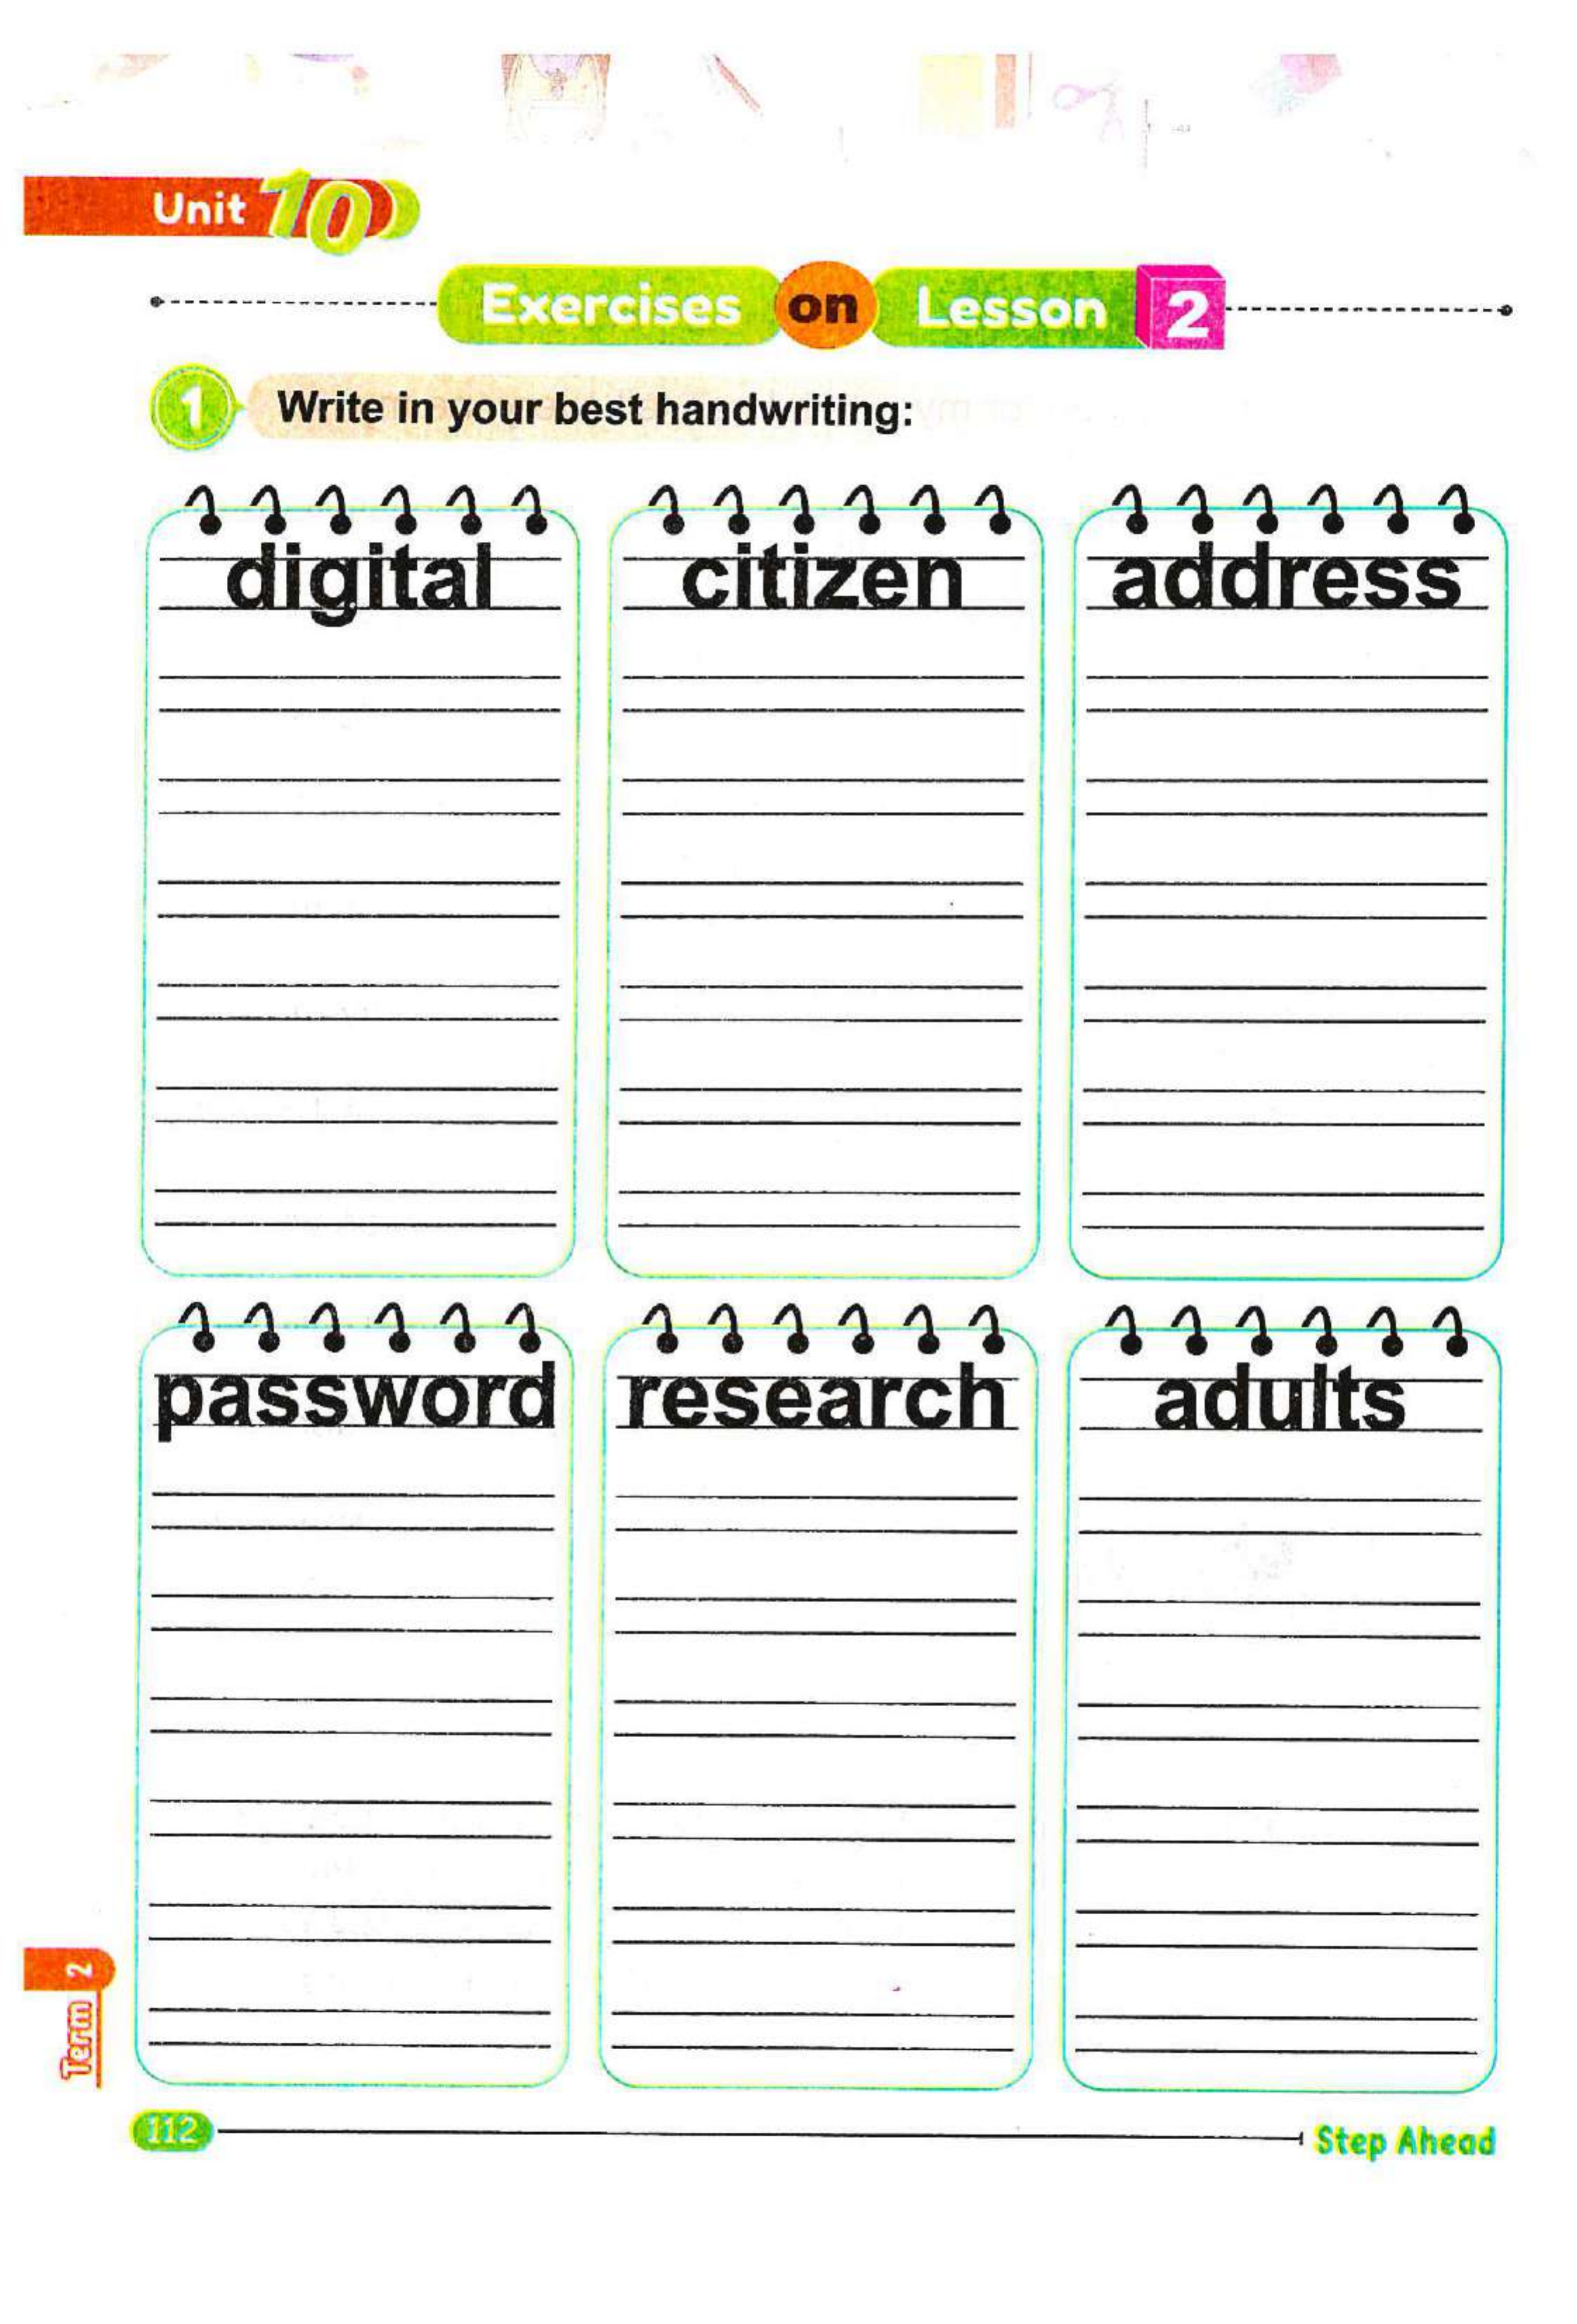 Unit 10
Exercises on Lesson 2
1 Write in your best handwriting:
digital citizen address
password research adults
Term 2
112 Step Ahead